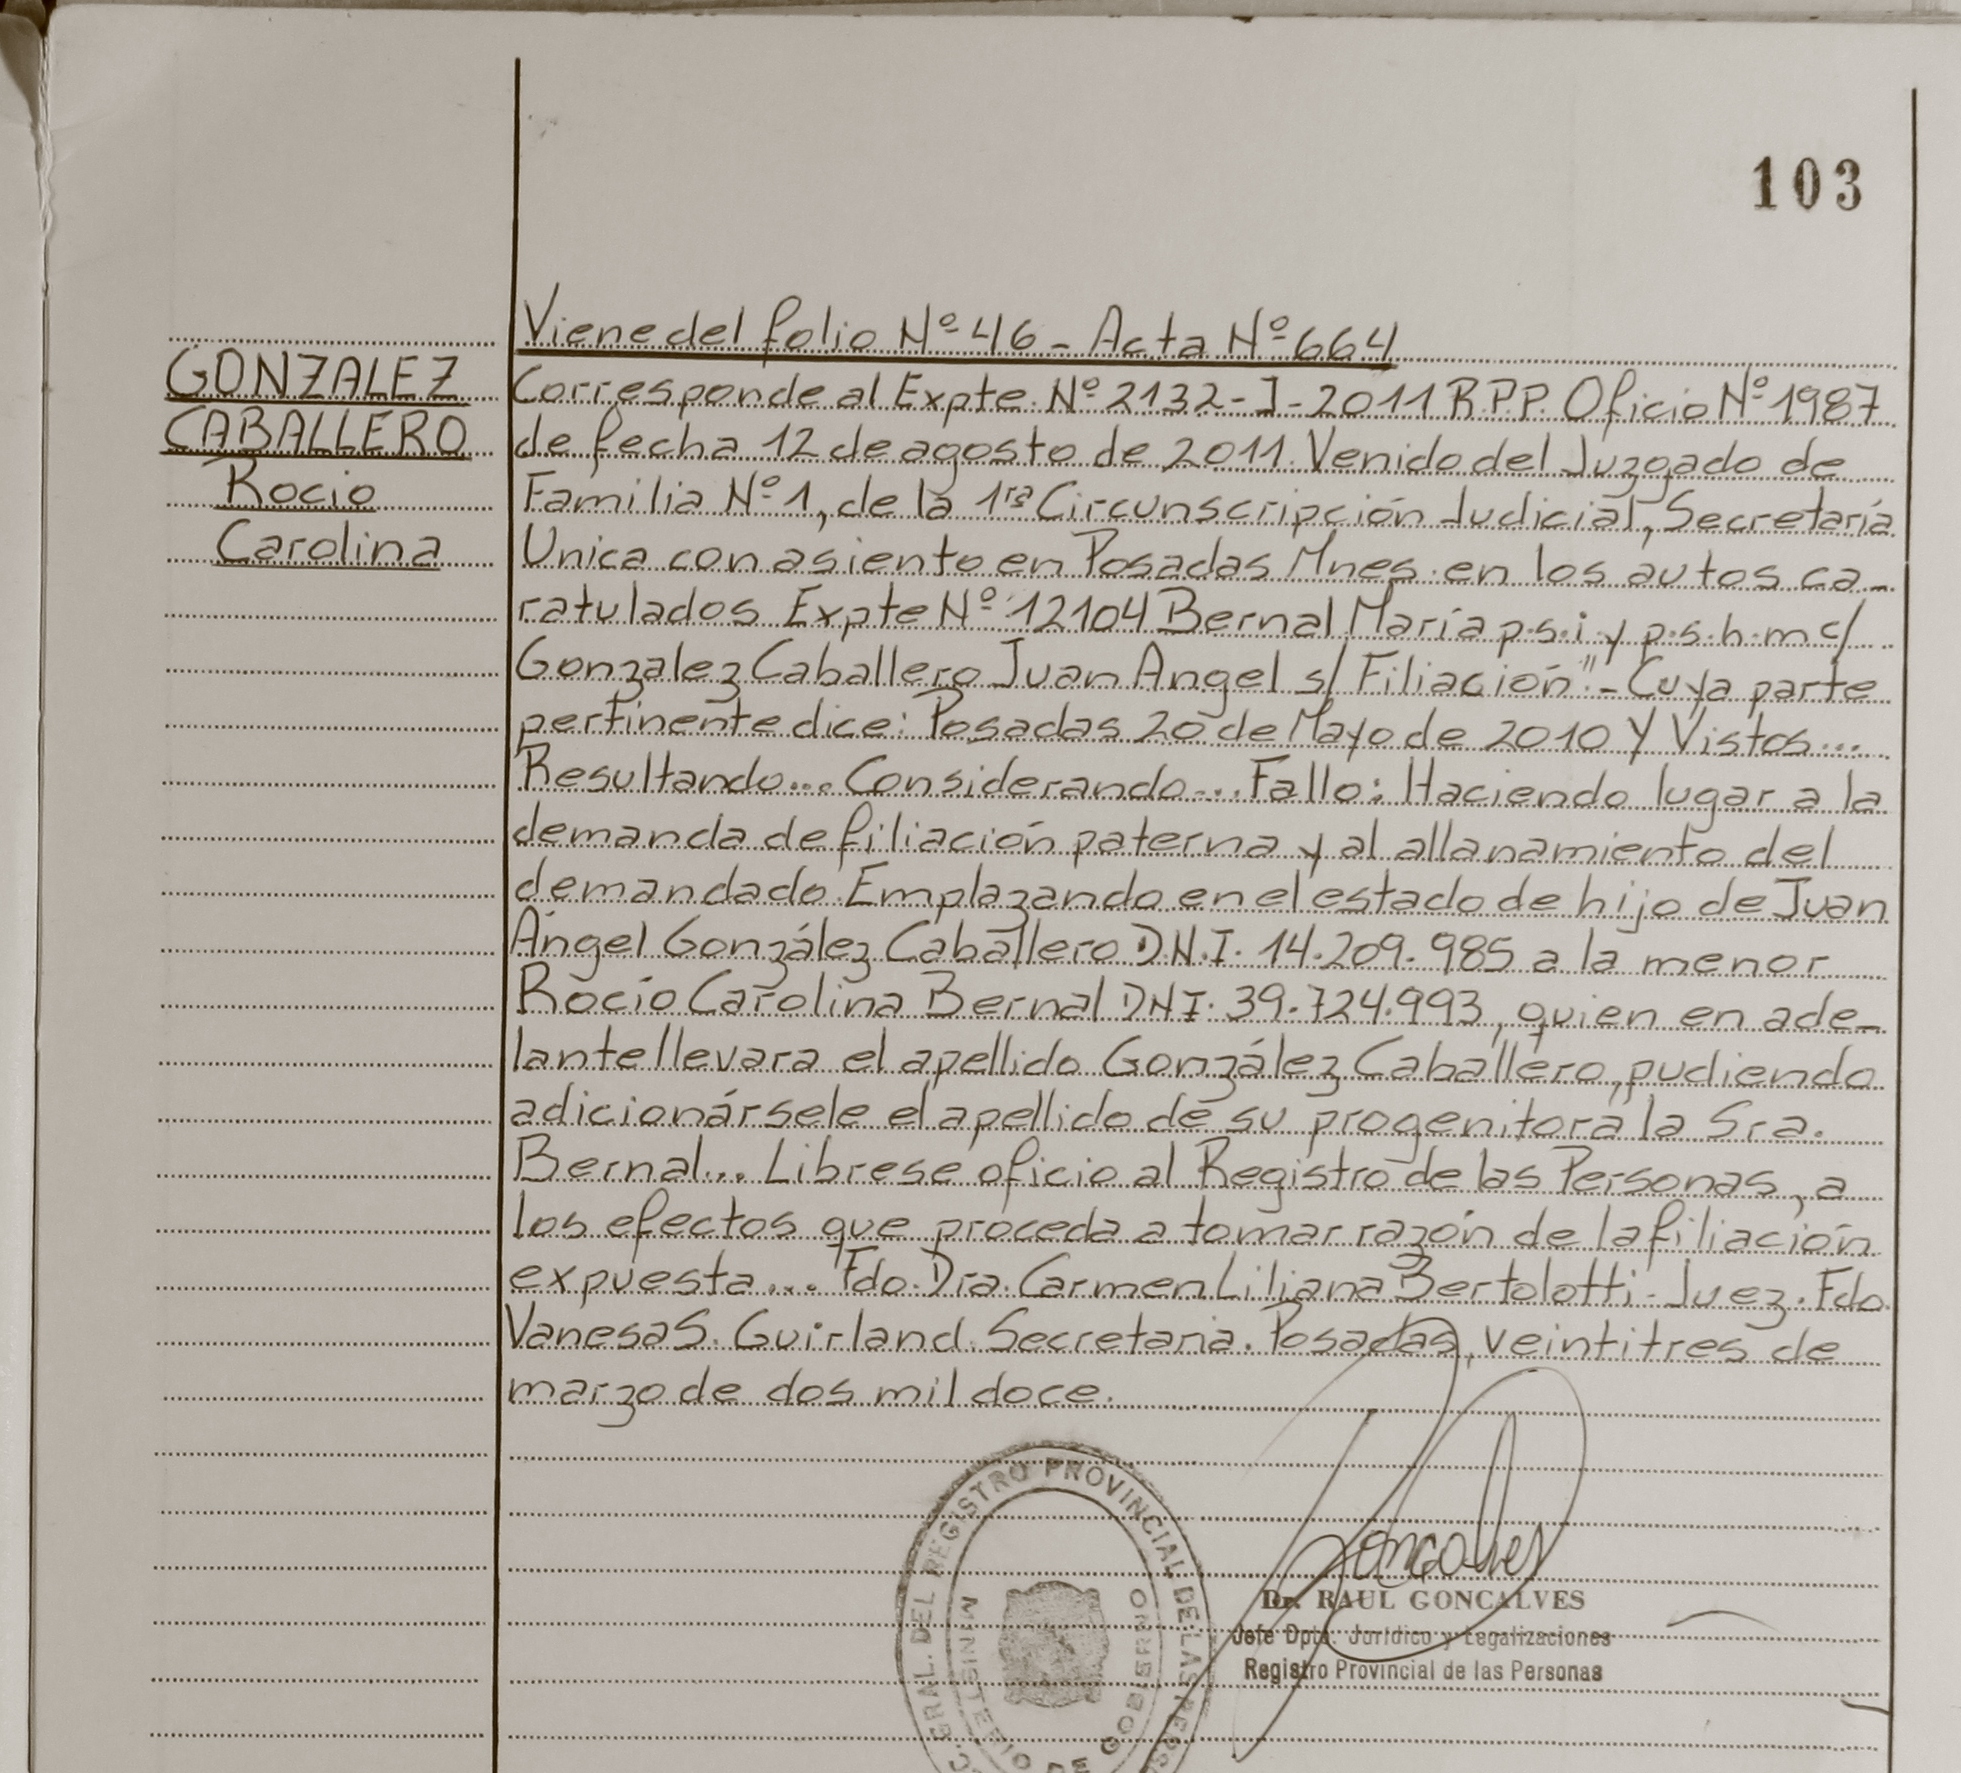 103
Viene del folio Nº 46 - Acta Nº 664
GONZALEZ
CABALLERO
Rocio
Carolina
Corresponde al Expte. Nº 2132-J-2011 R.P.P. Oficio Nº 1987
de fecha 12 de agosto de 2011. Venido del Juzgado de
Familia Nº 1, de la 1ra Circunscripción Judicial, Secretaría
Unica con asiento en Posadas Mnes. en los autos ca-
ratulados Expte Nº 12104 Bernal María p.s.i y p.s.h.m c/
Gonzalez Caballero Juan Angel s/ Filiación" - Cuya parte
pertinente dice: Posadas 20 de Mayo de 2010 Y Vistos...
Resultando... Considerando... Fallo: Haciendo lugar a la
demanda de filiación paterna y al allanamiento del
demandado. Emplazando en el estado de hijo de Juan
Ángel González Caballero D.N.I. 14.209.985 a la menor
Rocío Carolina Bernal DNI. 39.724.993, quien en ade-
lante llevara el apellido González Caballero, pudiendo
adicionársele el apellido de su progenitora la Sra.
Bernal... Librese oficio al Registro de las Personas, a
los efectos que proceda a tomar razón de la filiación
expuesta... Fdo. Dra. Carmen Liliana Bertolotti - Juez. Fdo.
Vanesa S. Guirland. Secretaria. Posadas, veintitres de
marzo de dos mil doce.
GRAL. DEL REGISTRO PROVINCIAL DE LAS PERS
MINISTERIO DE GOBIERNO
Goncalves
Dr. RAUL GONCALVES
Jefe Dpto. Jurídico y Legalizaciones
Registro Provincial de las Personas